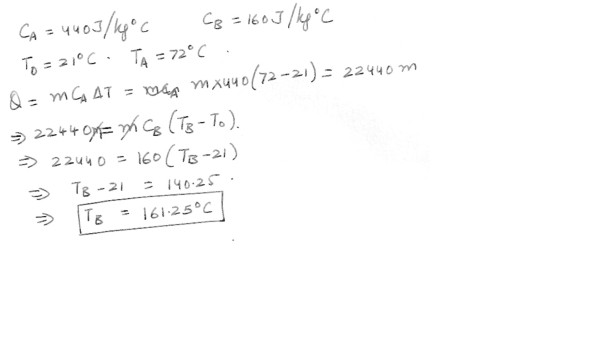 C_A = 440 J/kg°C C_B = 160 J/kg°C
T_0 = 21°C . T_A = 72°C .
Q = m C_A ΔT = m×440(72-21) = 22440 m
⇒ 22440m = m C_B (T_B - T_0).
⇒ 22440 = 160 (T_B - 21)
⇒ T_B - 21 = 140.25 .
⇒ T_B = 161.25°C